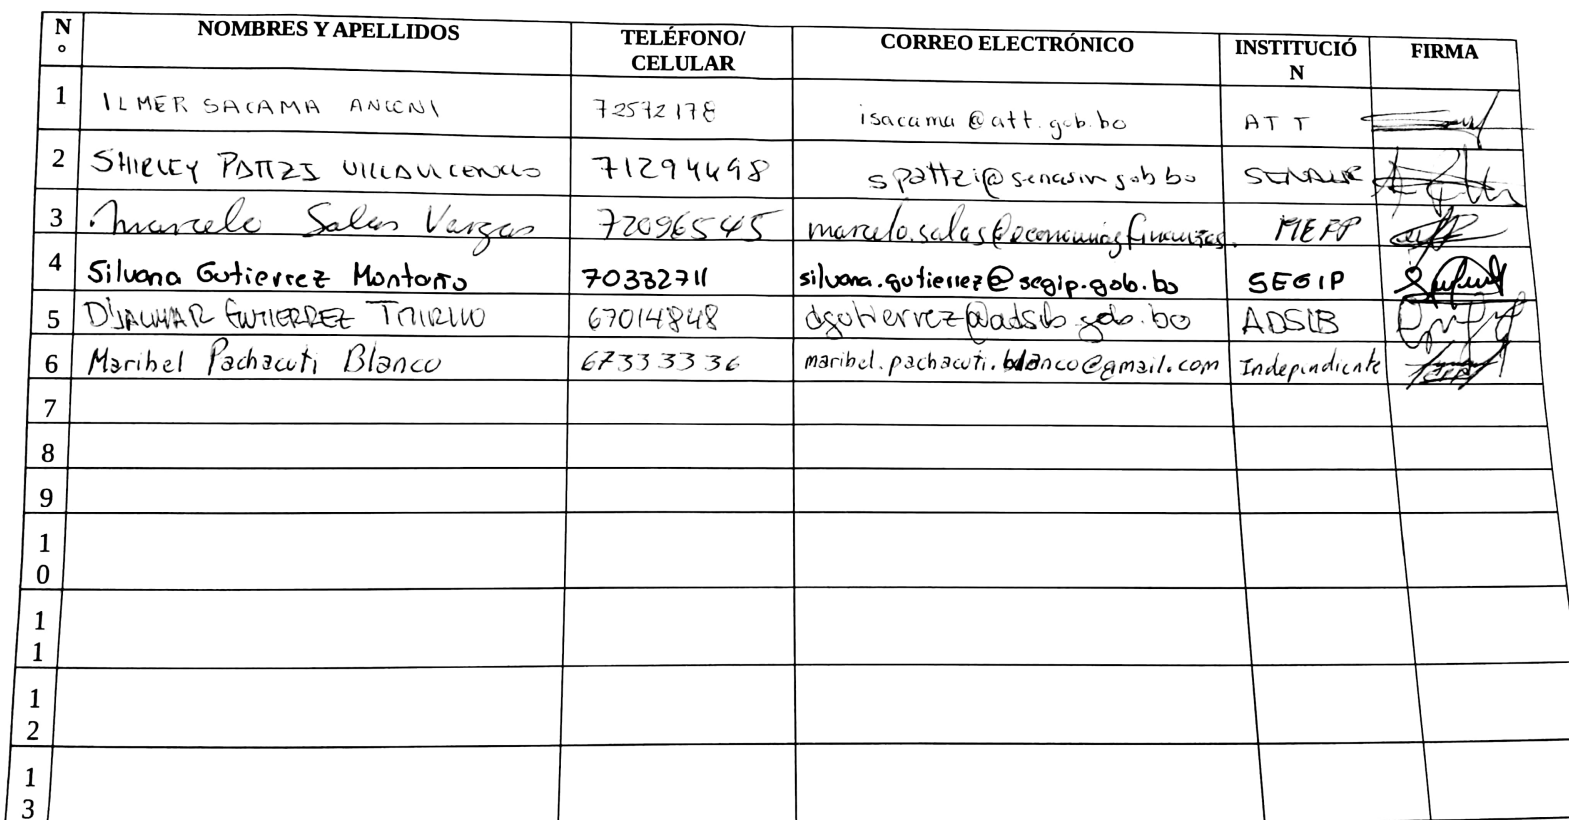 N° NOMBRES Y APELLIDOS TELÉFONO/ CELULAR CORREO ELECTRÓNICO INSTITUCIÓN FIRMA
1 ILMER SACAMA 72572178 isacama@att.gob.bo ATT
2 SHIRLEY PATTZI VILLAVICENCIO 71294498 spattzi@senasir.gob.bo SENASIR
3 Marcelo Salas Vargas 72096545 marcelo.salas@economiayfinanzas. MEFP
4 Silvana Gutierrez Montaño 70332711 silvana.gutierrez@segip.gob.bo SEGIP
5 GUTIERREZ 67014848 dgutierrez@adsib.gob.bo ADSIB
6 Maribel Pachacuti Blanco 67333336 maribel.pachacuti.blanco@gmail.com Independiente
7
8
9
10
11
12
13